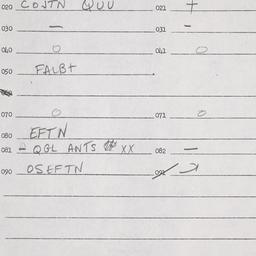 020 COJTN QUU 021 +
030 — 031 —
040 O 041 O
050 FALBT
070 O 071 O
080 EFTN
081 - QGL ANTS XX 082 —
090 OSEFTN 091